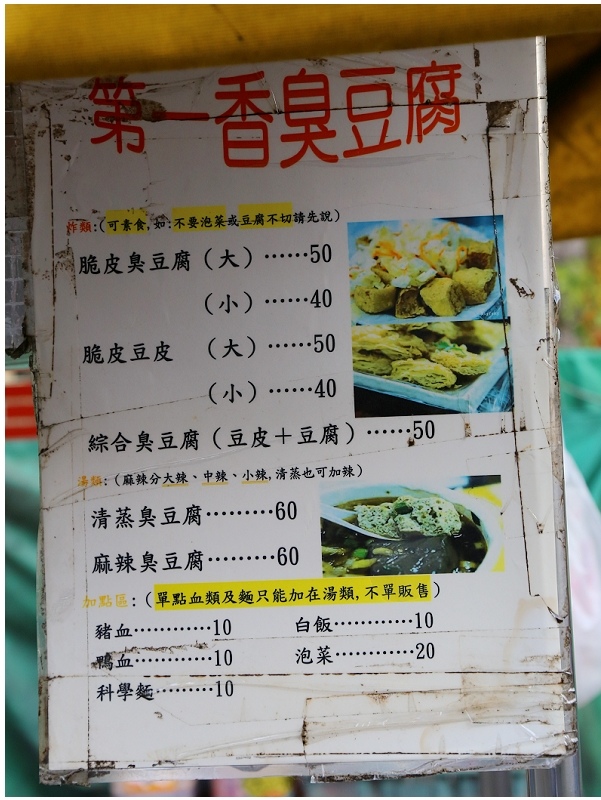 第一香臭豆腐
炸類:(可素食,如:不要泡菜或豆腐不切請先說)
脆皮臭豆腐(大)……50
(小)……40
脆皮豆皮 (大)……50
(小)……40
綜合臭豆腐(豆皮＋豆腐)……50
湯類:(麻辣分大辣、中辣、小辣,清蒸也可加辣)
清蒸臭豆腐………60
麻辣臭豆腐………60
加點區:(單點血類及麵只能加在湯類,不單販售)
豬血…………10 白飯…………10
鴨血…………10 泡菜…………20
科學麵………10